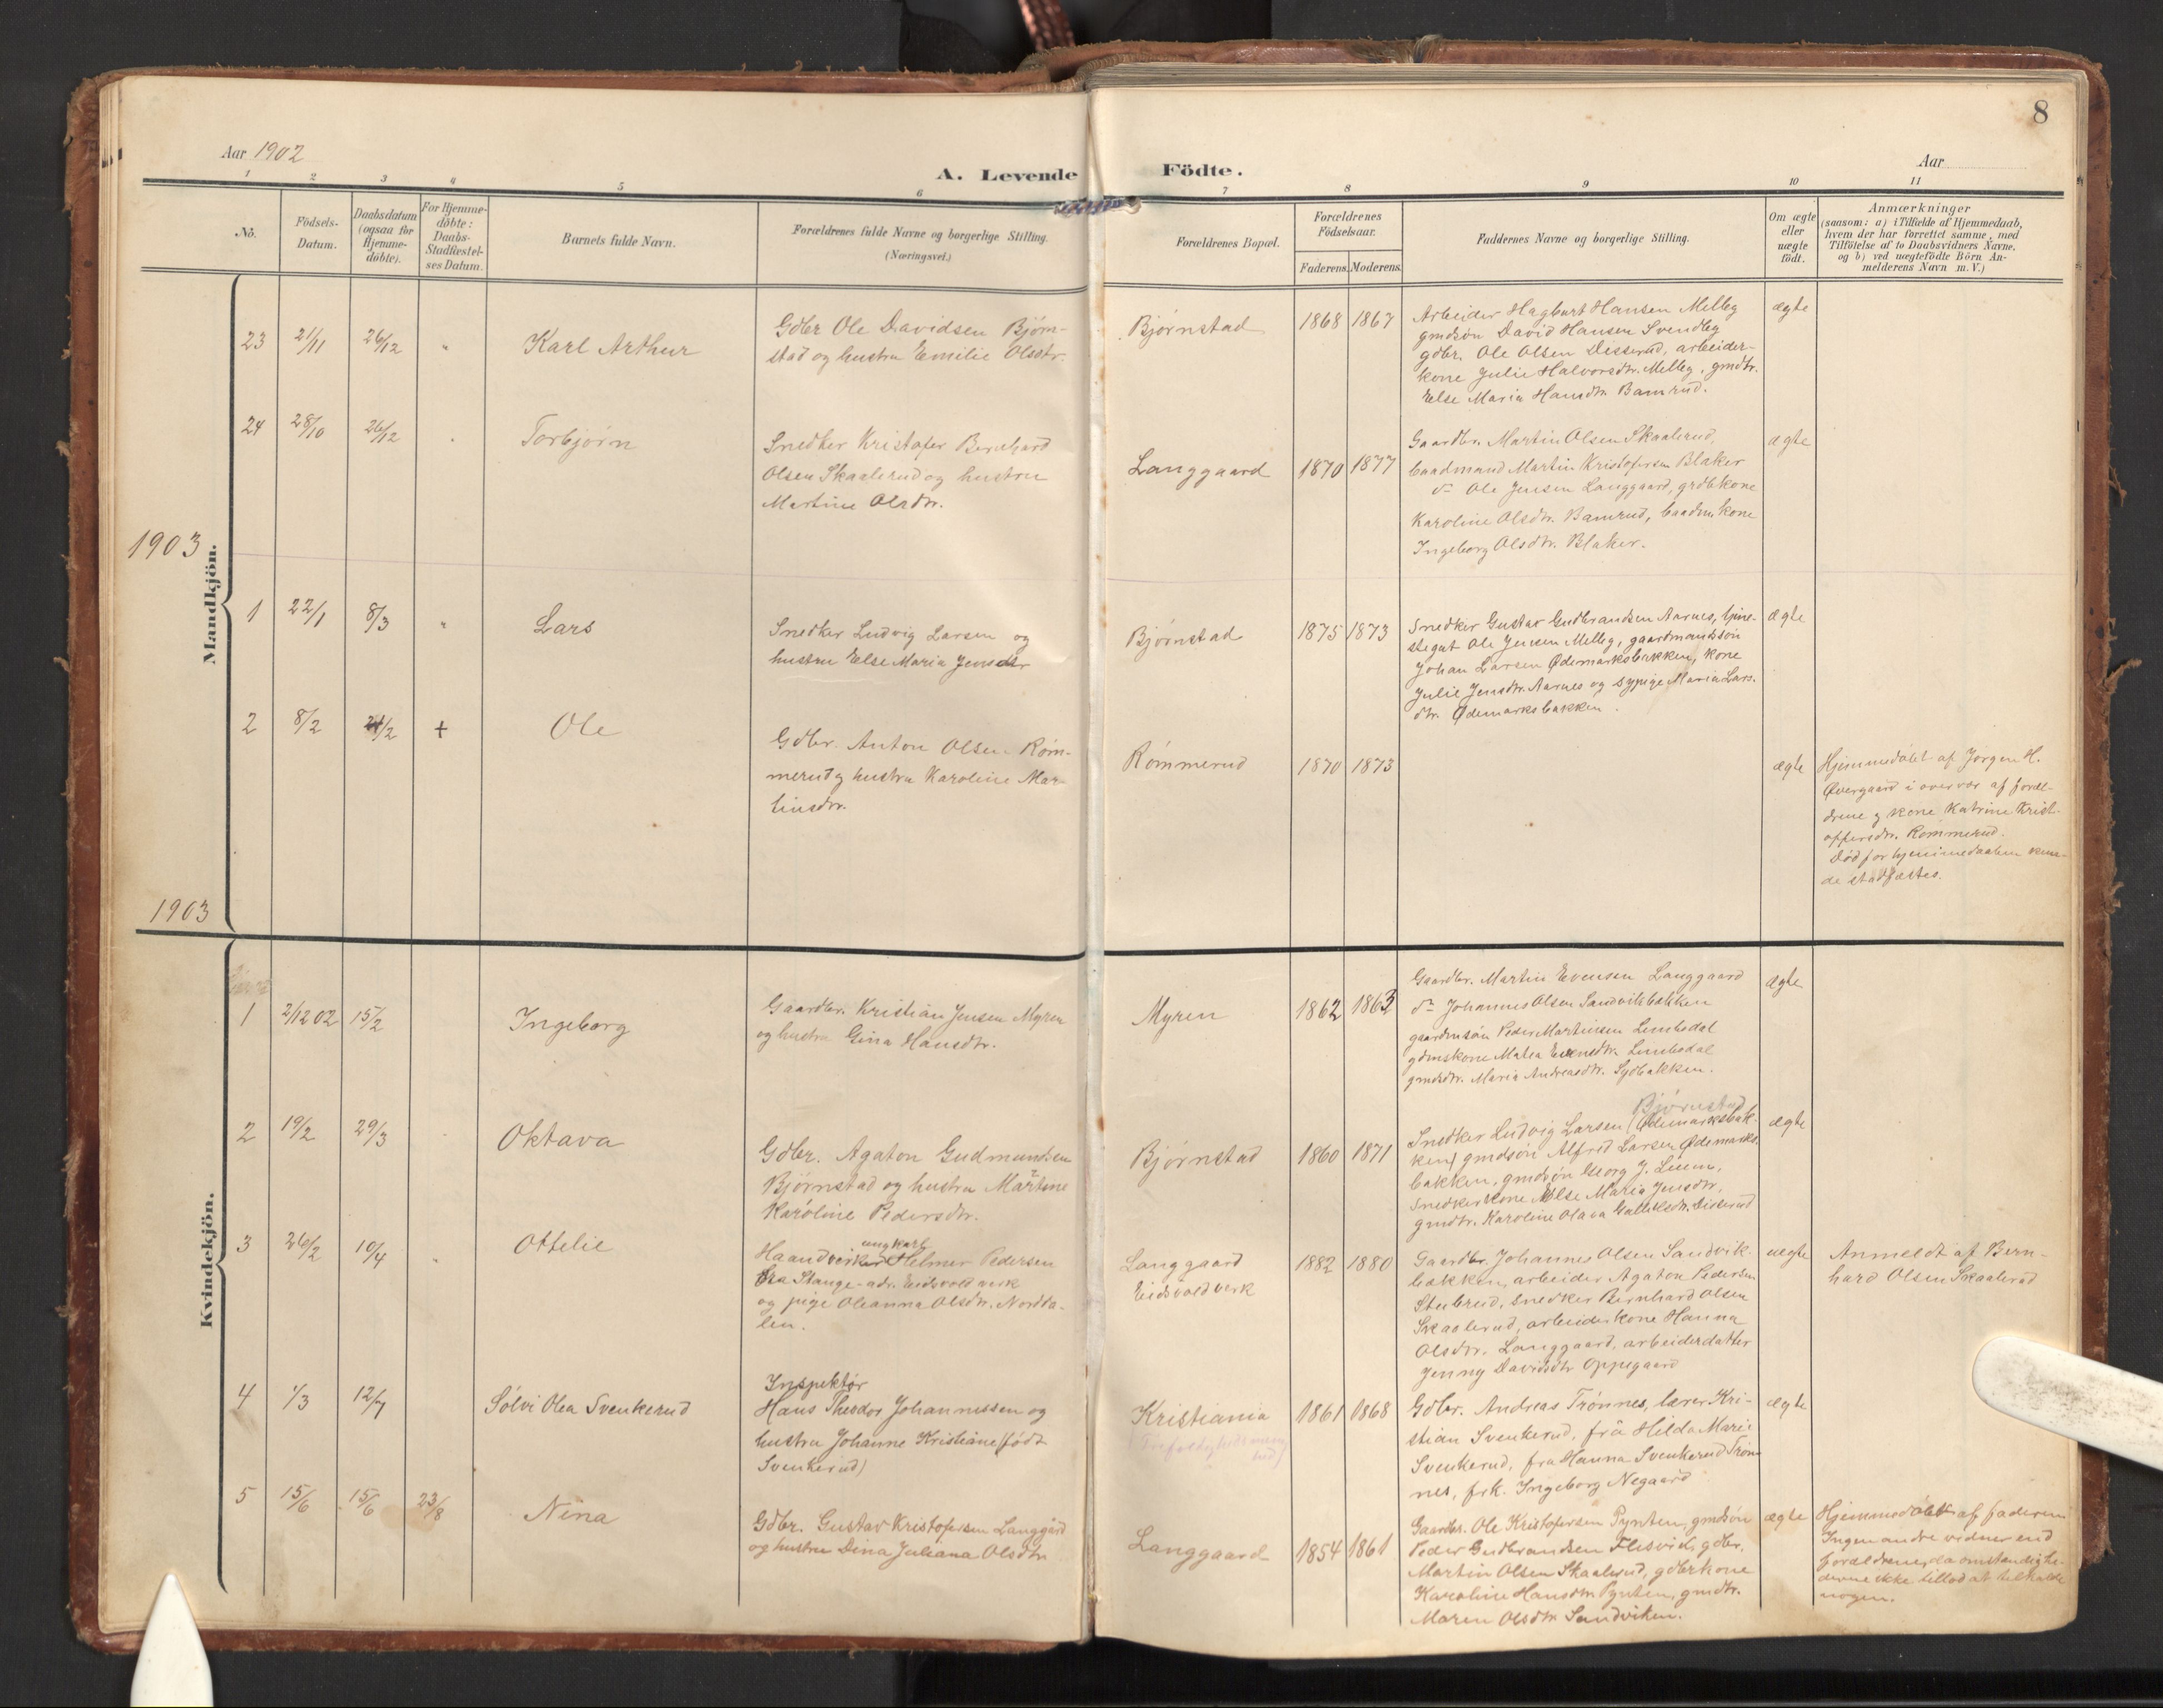 8
Aar 1902
A. Levende Födte.
Aar
1 2 3 4 5 6 7 8 9 10 11
Nô.
Födsels-
Datum.
Daabsdatum
(ogsaa for
Hjemme-
döbte).
For Hjemme-
döbte:
Daabs-
Stadfæstel-
ses Datum.
Barnets fulde Navn.
Forældrenes fulde Navne og borgerlige Stilling.
(Næringsvei.)
Forældrenes Bopæl.
Forældrenes
Födselsaar.
Faderens. Moderens.
Faddernes Navne og borgerlige Stilling.
Om ægte
eller
uægte
födt.
Anmærkninger
(saasom: a) i Tilfælde af Hjemmedaab,
hvem der har forrettet samme, med
Tilföielse af to Daabsvidners Navne,
og b) ved uægtefödte Börn An-
melderens Navn m. V.)
Mandkjön.
23 21/11 26/12 " Karl Arthur
Gdbr Ole Davidsen Bjørn-
stad og hustru Emilie Olsdtr.
Bjørnstad 1868 1867
Arbeider Hagbart Hansen Melby
gmdsøn David Hansen Svendby
gdbr. Ole Olsen Disserud, arbeider-
kone Julie Halvorsdtr. Melby, gmdtr.
Else Maria Hansdtr. Bamrud.
ægte
24 28/10 26/12 " Torbjørn
Snedker Kristofer Bernhard
Olsen Skaalerud og hustru
Martine Olsdtr.
Langgaard 1870 1877
Gaardbr. Martin Olsen Skaalerud,
baadmand Martin Kristofersen Blaker
do Ole Jensen Langgaard, grdbkone
Karoline Olsdtr. Bamrud, baadm. kone
Ingeborg Olsdtr. Blaker.
ægte
1903
1 22/1 8/3 " Lars
Snedker Ludvig Larsen og
hustru Else Maria Jensdtr
Bjørnstad 1875 1873
Snedker Gustav Gudbrandsen Aarnes, tjene-
stegut Ole Jensen Melby, gaardmandssøn
Johan Larsen Ødemarksbakken, kone
Julie Jensdtr. Aarnes og sypige Maria Lars-
dtr. Ødemarksbakken.
ægte
2 8/2 /2 + Ole
Gdbr. Anton Olsen Røm-
merud og hustru Karoline Mar-
tinsdtr.
Rømmerud 1870 1873
ægte
Hjemmedøbt af Jørgen H.
Øvergaard i overvær af foræl-
drene og kone Katrine Krist-
offersdtr. Rømmerud.
Død før hjemmedaaben kun-
de stadfæstes.
1903
Kvindekjön.
1 2/12 02 15/2 Ingeborg
Gaardbr. Kristian Jensen Myren
og hustru Gina Hansdtr.
Myren 1862 1863
Gaardbr. Martin Evensen Langgaard
do Johannes Olsen Sandvikbakken
gaardmsøn Peder Martinsen Limbodal
gdmskone Matea Evensdtr. Limbodal
gmdsdtr. Maria Andreasdtr. Sydbakken.
ægte
2 19/2 29/3 Oktava
Gdbr. Agaton Gudmundsen
Bjørnstad og hustru Martine
Karoline Pedersdtr.
Bjørnstad 1860 1871
Bjørnstad
Snedker Ludvig Larsen (Ødemarksbak-
ken) gmdsøn Alfred Larsen Ødemarks-
bakken, gmdsøn Georg J.
Snedkerkone Else Maria Jensdtr,
gmdtr. Karoline Olava Disserud
ægte
3 26/2 10/4 " Ottelie
ungkarl
Haandverker Helmer Pedersen
fra Stange - adr. Eidsvold verk
og pige Oleanna Olsdtr. Nordda-
len.
Langgaard
Eidsvold verk
1882 1880
Gaardbr. Johannes Olsen Sandvik-
bakken, arbeider Agaton Pedersen
Stubrud, Snedker Bernhard Olsen
Skaalerud, arbeiderkone Hanna
Olsdtr. Langgaard, arbeiderdatter
Jenny Davidsdtr Oppegaard
uægte
Anmeldt af Bern-
hard Olsen Skaalerud
4 1/3 12/7 Sølvi Olea Svenkerud
Inspektør
Hans Theodor Johannessen og
hustru Johanne Kristiane (født
Svenkerud)
Kristiania
(Trefoldigheds menig-
hed)
1861 1868
Gdbr. Andreas Trønnes, lærer Kri-
stian Svenkerud, fru Hilda Marie
Svenkerud, fru Hanna Svenkerud Trøn-
nes, frk. Ingeborg Negaard
ægte
5 15/6 15/6 23/8 Nina
Gdbr. Gustav Kristofersen Langgård
og hustru Dina Juliana Olsdtr.
Langgaard 1854 1861
Gaardbr. Ole Kristofersen Pynten, gmdsøn
Peder Gudbrandsen Flesvik, gdbr.
Martin Olsen Skaalerud, gdbrkone
Karoline Hansdtr. Pynten, gmdtr.
Maren Olsdtr Sandviken.
ægte
Hjemmedøbt af faderen
Ingen andre vidner end
forældrene, da omstændighe-
derne ikke tillod at tilkalde
nogen.